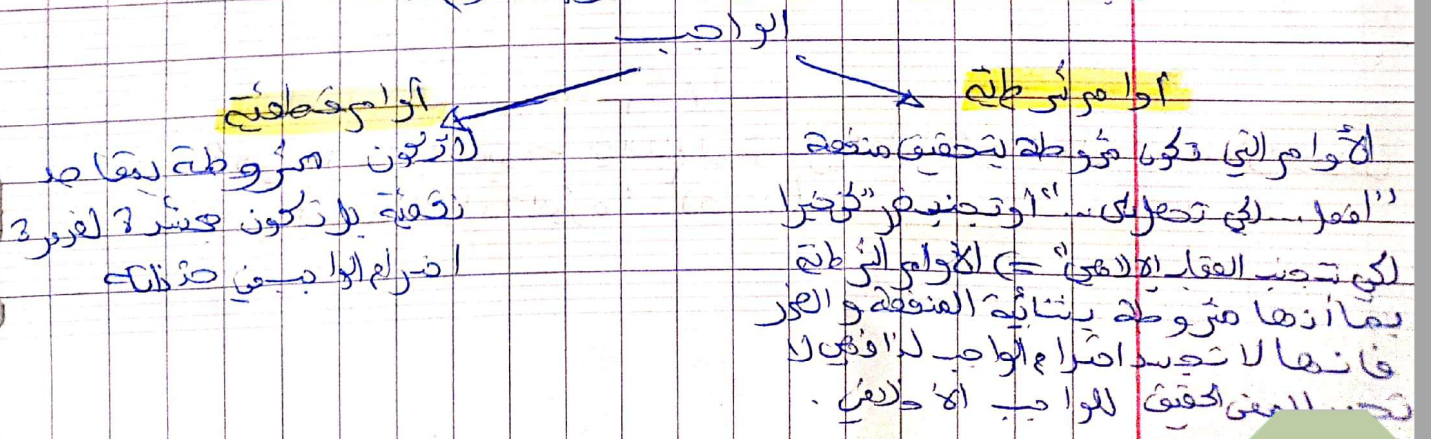 الواجب
أوامر شرطية
الأوامر التي تكون مشروطة بتحقيق منفعة
"افعل... لكي تحصل على..." أو تجنب ضرر "كن خيرا
لكي تتجنب العقاب الإلاهي" => الأوامر الشرطية
بما أنها مشروطة بثنائية المنفعة و الضرر
فانها لا تجسد احترام الواجب لذا فهي لا
المعنى الحقيقي للواجب الأخلاقي.
أوامر قطعية
لا تكون مشروطة بمقاصد
نفعية بل تكون لغرض
احترام الواجب في حد ذاته